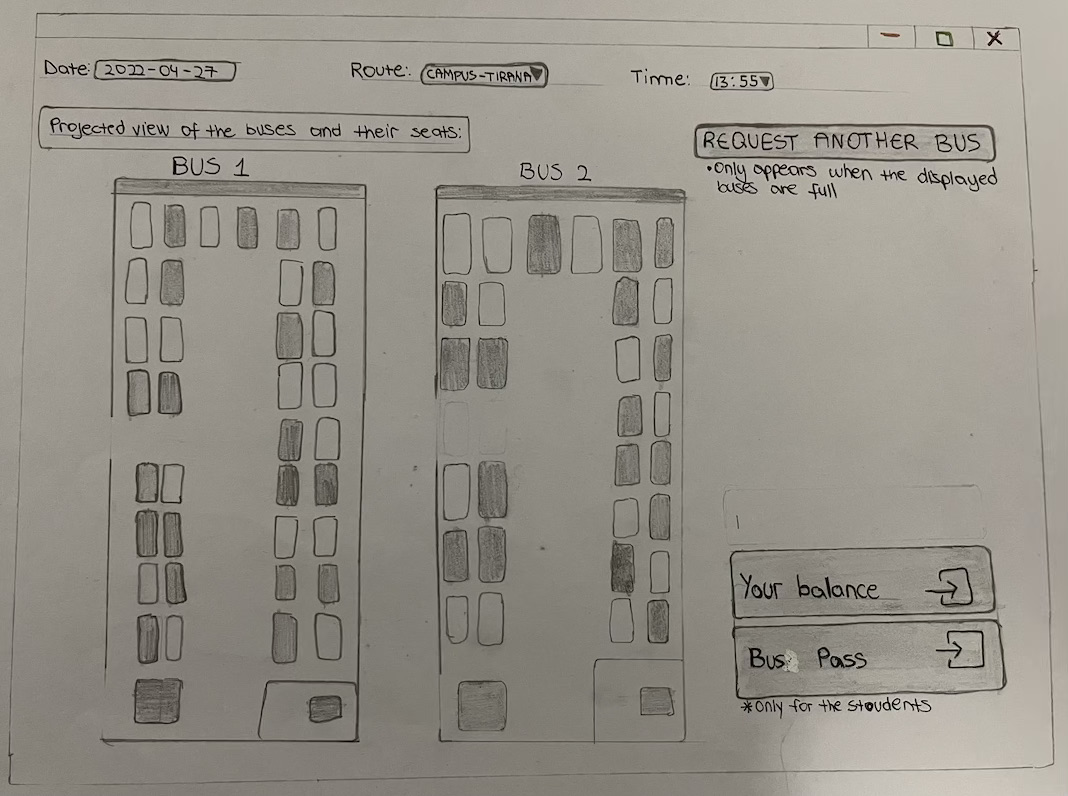 Date: 2022-04-27
Route: CAMPUS-TIRANA
Timme: 13:55
Projected view of the buses and their seats:
BUS 1
BUS 2
REQUEST ANOTHER BUS
•Only appears when the displayed
buses are full
Your balance
Bus Pass
*Only for the stoudents